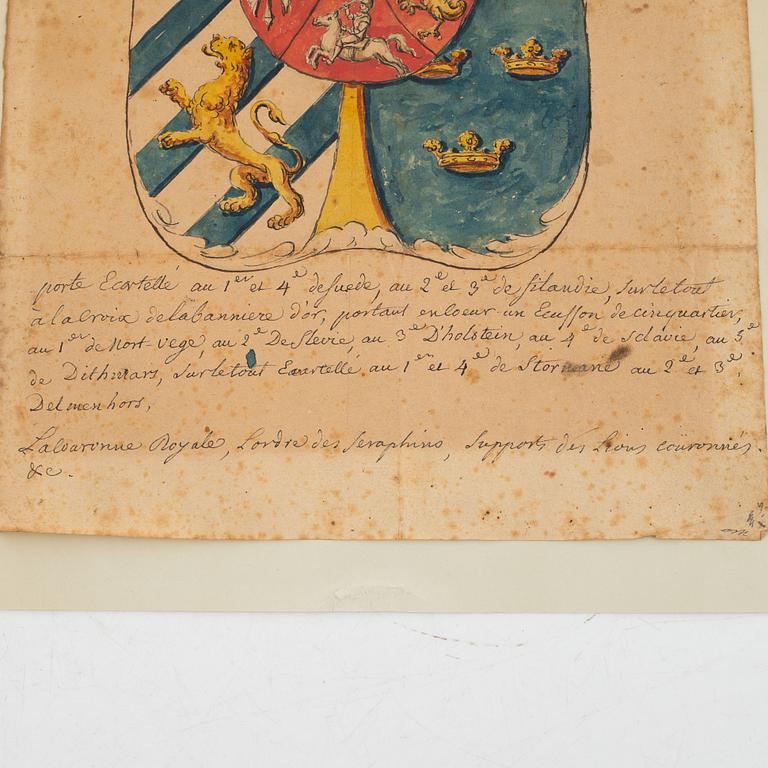 porte Ecartellé au 1er et 4e de suede, au 2e et 3e de filandie, sur le tout
à la Croix de la banniere d'or, portant en coeur un Ecusson de cinq quartier,
au 1er de Nort-vege, au 2e De Slevie, au 3e D'holstein, au 4e de Sclavie, au 5e
de Dithmars, sur le tout Ecartellé au 1er et 4e de Stormane au 2e et 3e,
Delmenhors,
La Couronne Royale, L'ordre des seraphins, Supports des Lions couronnés
&c.